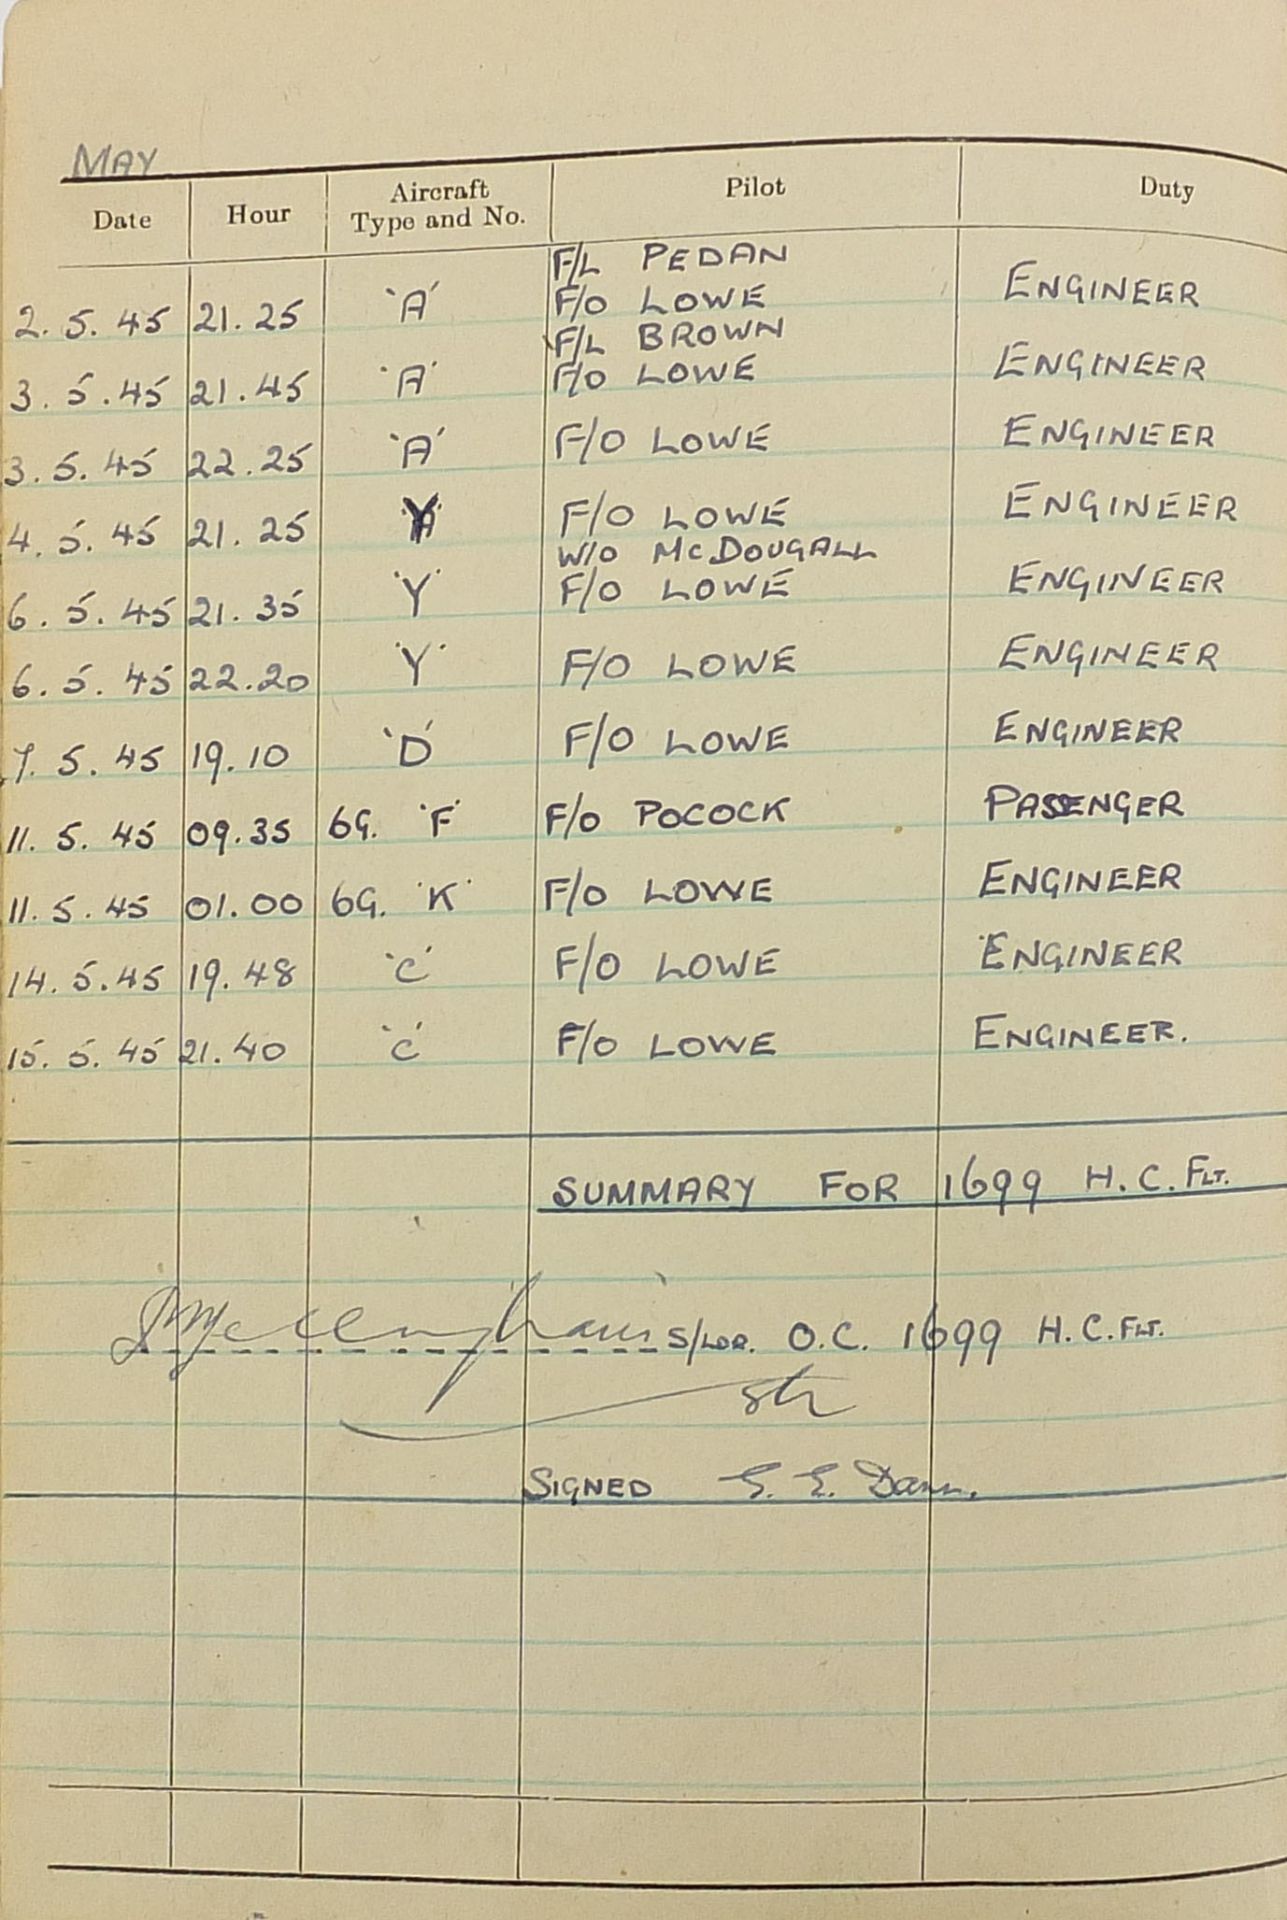 MAY
Date Hour Aircraft Type and No. Pilot Duty
F/L PEDAN
2.5.45 21.25 'A' F/O LOWE ENGINEER
F/L BROWN
3.5.45 21.45 'A' F/O LOWE ENGINEER
3.5.45 22.25 'A' F/O LOWE ENGINEER
4.5.45 21.25 'Y' F/O LOWE ENGINEER
W/O McDOUGALL
6.5.45 21.35 'Y' F/O LOWE ENGINEER
6.5.45 22.20 'Y' F/O LOWE ENGINEER
7.5.45 19.10 'D' F/O LOWE ENGINEER
11.5.45 09.35 6G. 'F' F/O POCOCK PASSENGER
11.5.45 01.00 6G. 'K' F/O LOWE ENGINEER
14.5.45 19.48 'C' F/O LOWE ENGINEER
15.5.45 21.40 'C' F/O LOWE ENGINEER.
SUMMARY FOR 1699 H.C. FLT.
S/LDR. O.C. 1699 H.C. FLT.
SIGNED